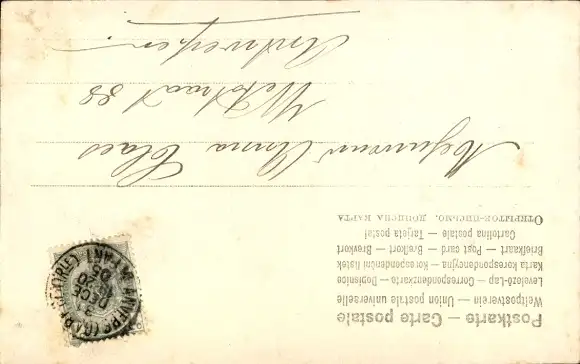 Postkarte — Carte postale
Weltpostverein — Union postale universelle
Levelező-Lap — Correspondenzkarte — Dopisnice
Karta korespondencyjna — Korespondenční listek
Briefkaart — Post card — Brevkort — Brefkort
Cartolina postale — Tarjeta postal
Открытое письмо. Дописна карта
ANVERS (GARE
Mejuvrouw Anna Claes
88
Antwerpen.